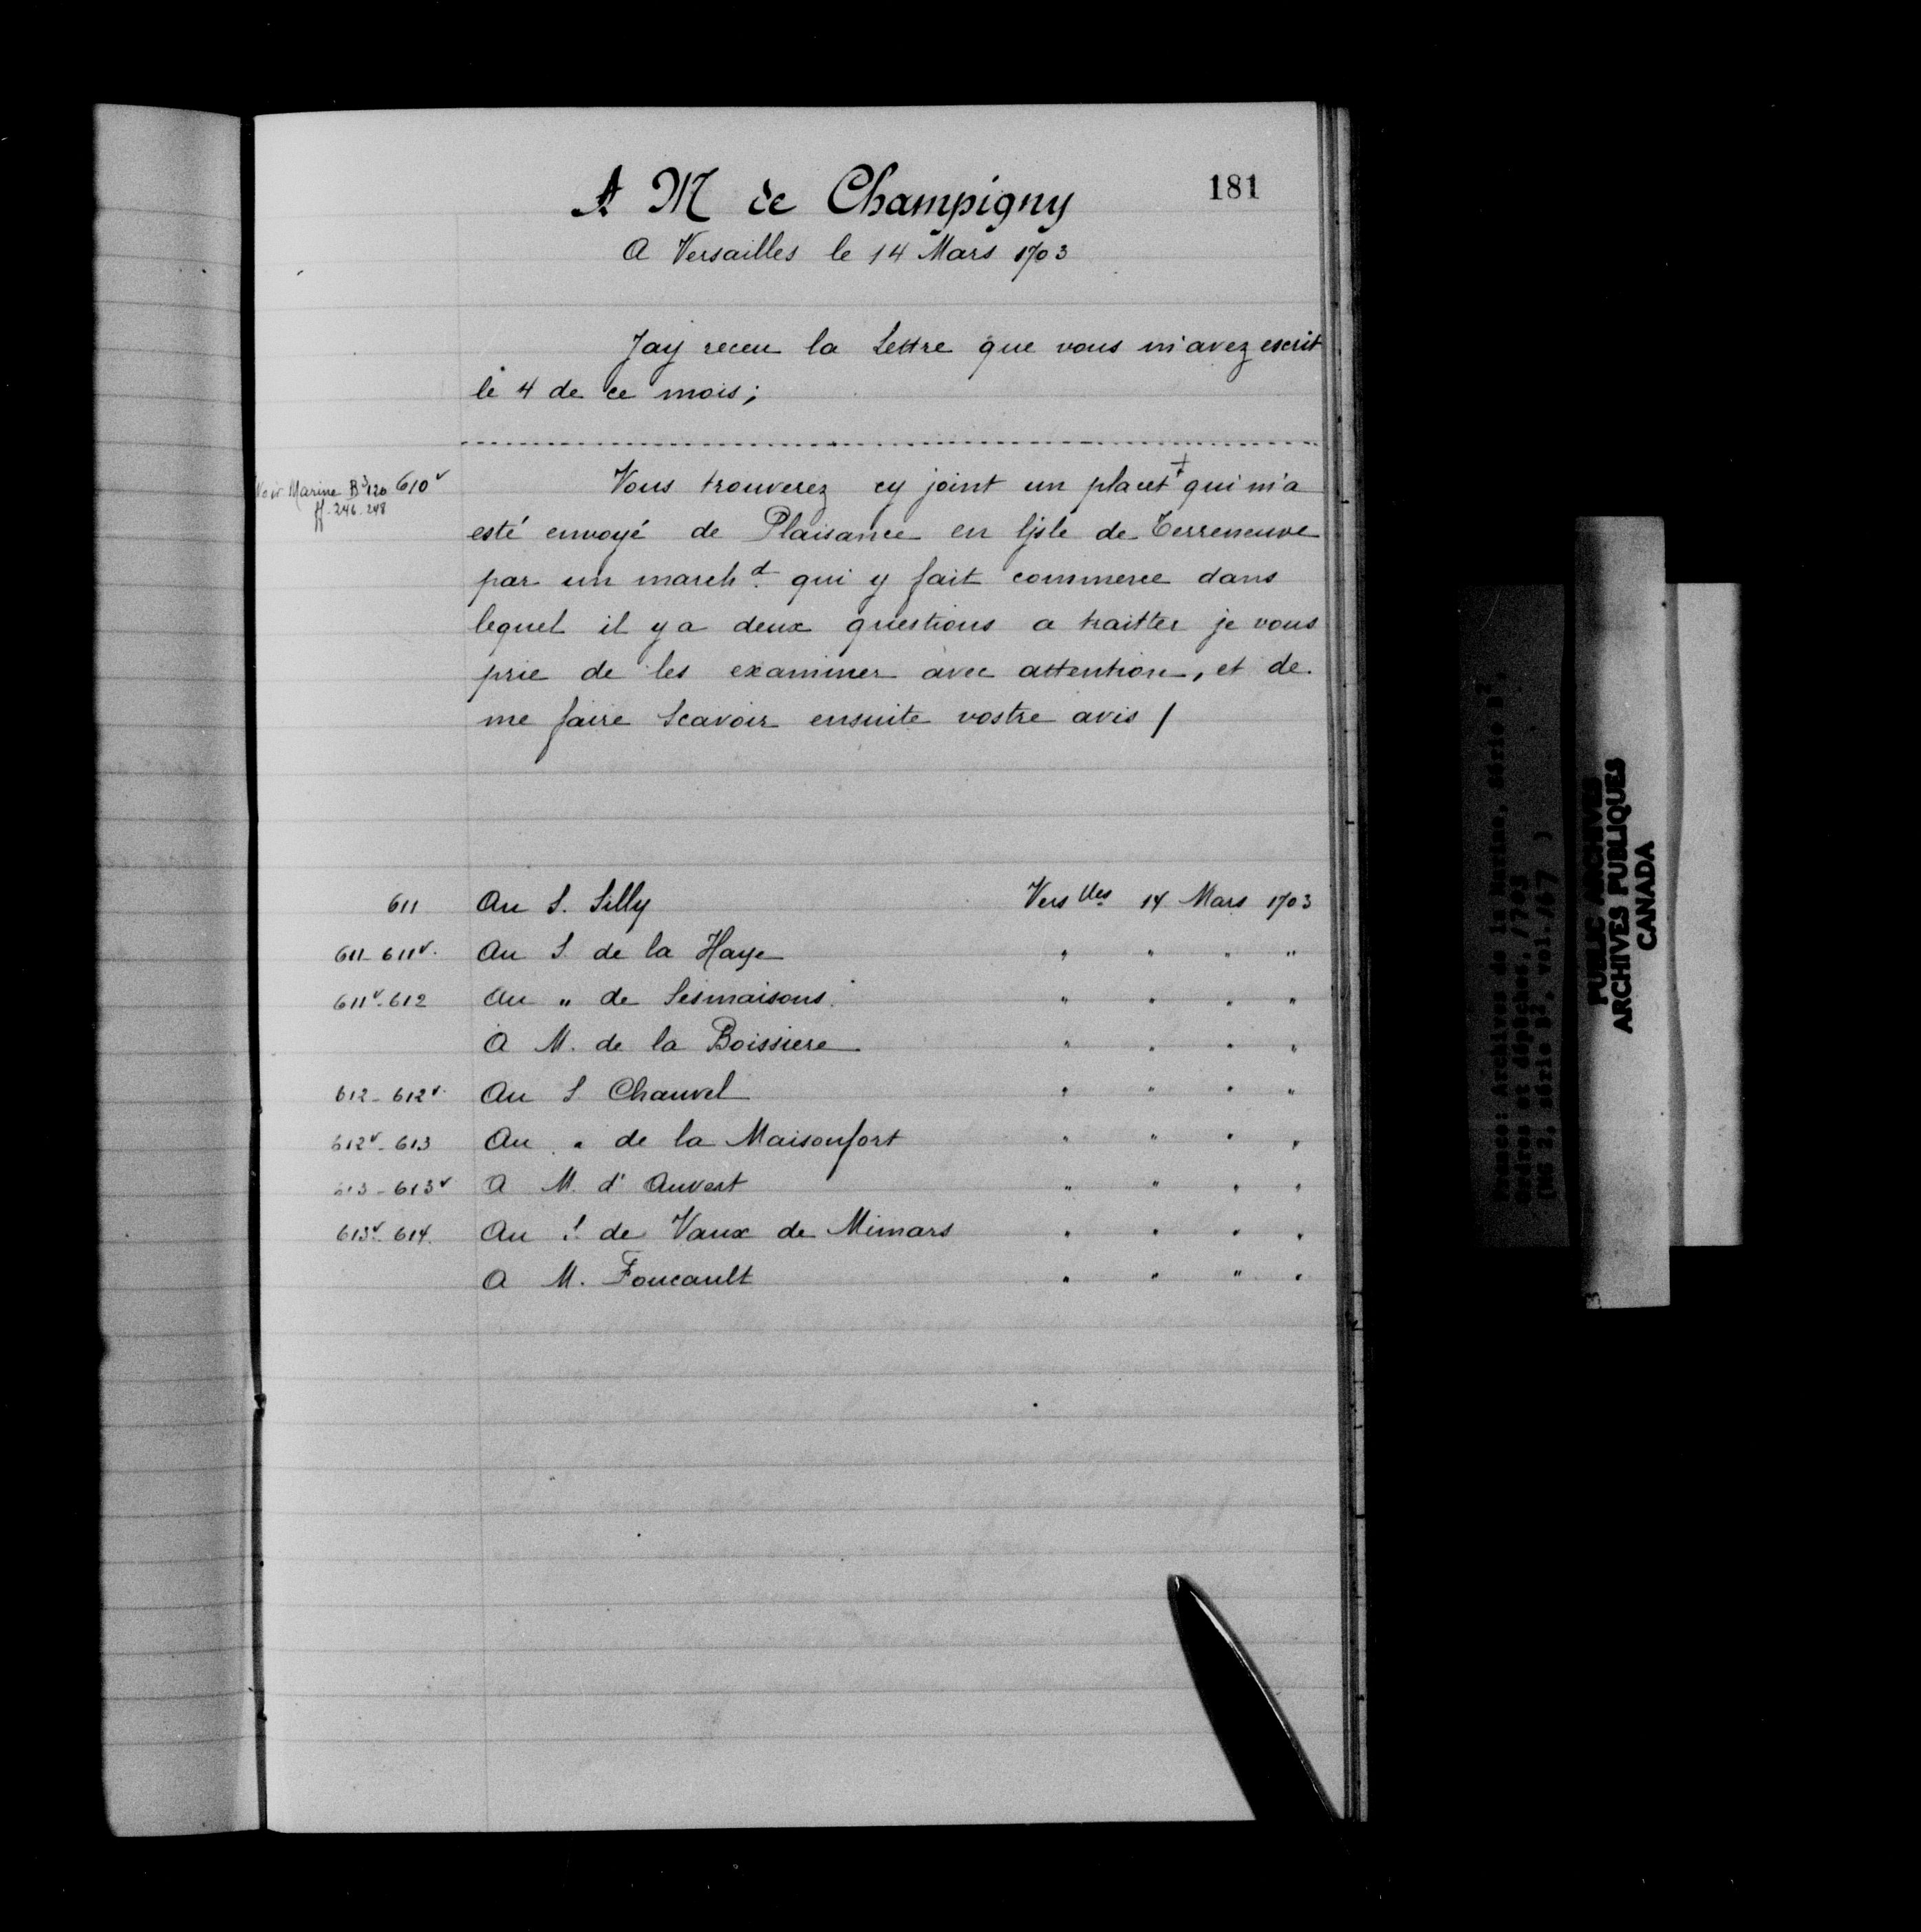 181
A M de Champigny
A Versailles le 14 Mars 1703
Jay receu la Lettre que vous m'avez escrit
le 4 de ce mois;
Voir Marine B³120 610ᵛ
ff. 246-248
Vous trouverez cy joint un placet + qui m'a
esté envoyé de Plaisance en Ljsle de Terreneuve
par un marchᵈ. qui y fait commerce dans
lequel il y a deux questions a traitter je vous
prie de les examiner avec attention, et de
me faire Scavoir ensuite vostre avis /
611 Au S. Silly Versˡˡᵉˢ 14 Mars 1703
611-611ᵛ. Au S de la Haye " " " "
611ᵛ-612 Au " de Sesmaisons. " " " "
A M. de la Boissiere " " " "
612-612ᵛ. Au S Chauvel " " " "
612ᵛ-613 Au " de la Maisonfort " " " "
613-613ᵛ A M. d'Auvert " " " "
613ᵛ-614. Au S de Vaux de Mimars " " " "
A M. Foucault " " " "
France: Archives de la Marine, Série B²,
ordres et dépêches, 1703
(MG 2, série B², vol. 167 )
PUBLIC ARCHIVES
ARCHIVES PUBLIQUES
CANADA